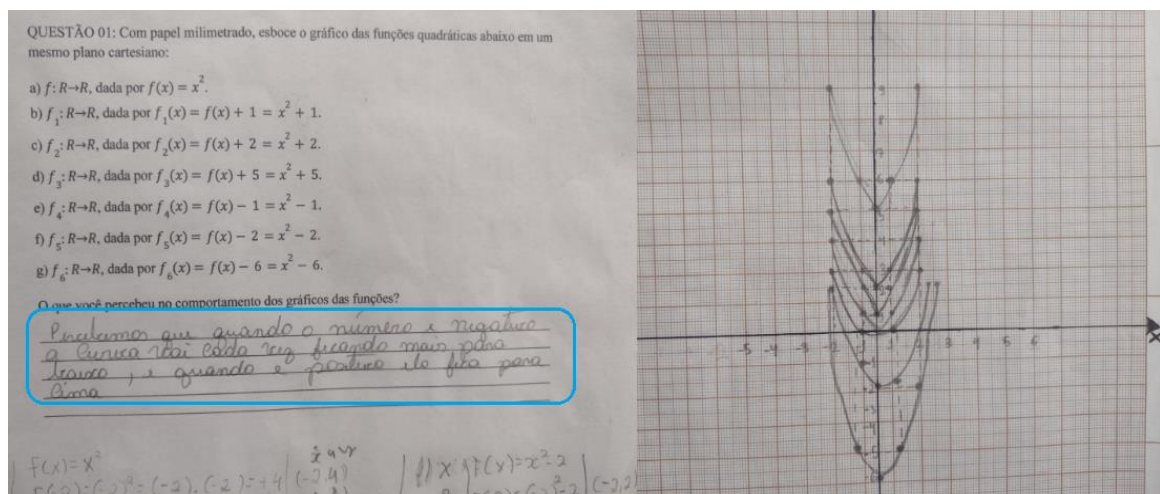 QUESTÃO 01: Com papel milimetrado, esboce o gráfico das funções quadráticas abaixo em um
mesmo plano cartesiano:
a) f: R→R, dada por f(x) = x².
b) f₁: R→R, dada por f₁(x) = f(x) + 1 = x² + 1.
c) f₂: R→R, dada por f₂(x) = f(x) + 2 = x² + 2.
d) f₃: R→R, dada por f₃(x) = f(x) + 5 = x² + 5.
e) f₄: R→R, dada por f₄(x) = f(x) − 1 = x² − 1.
f) f₅: R→R, dada por f₅(x) = f(x) − 2 = x² − 2.
g) f₆: R→R, dada por f₆(x) = f(x) − 6 = x² − 6.
O que você percebeu no comportamento dos gráficos das funções?
Percebemos que quando o número é negativo
a curva vai cada vez ficando mais para
baixo, e quando é positivo ela fica para
cima
f(x)=x²
(-2,4)
f) x f(x)=x²-2
(-2,2)
9
8
7
6
5
4
-5 -4 -3 -2 -1 1 2 3 4 5 6
x